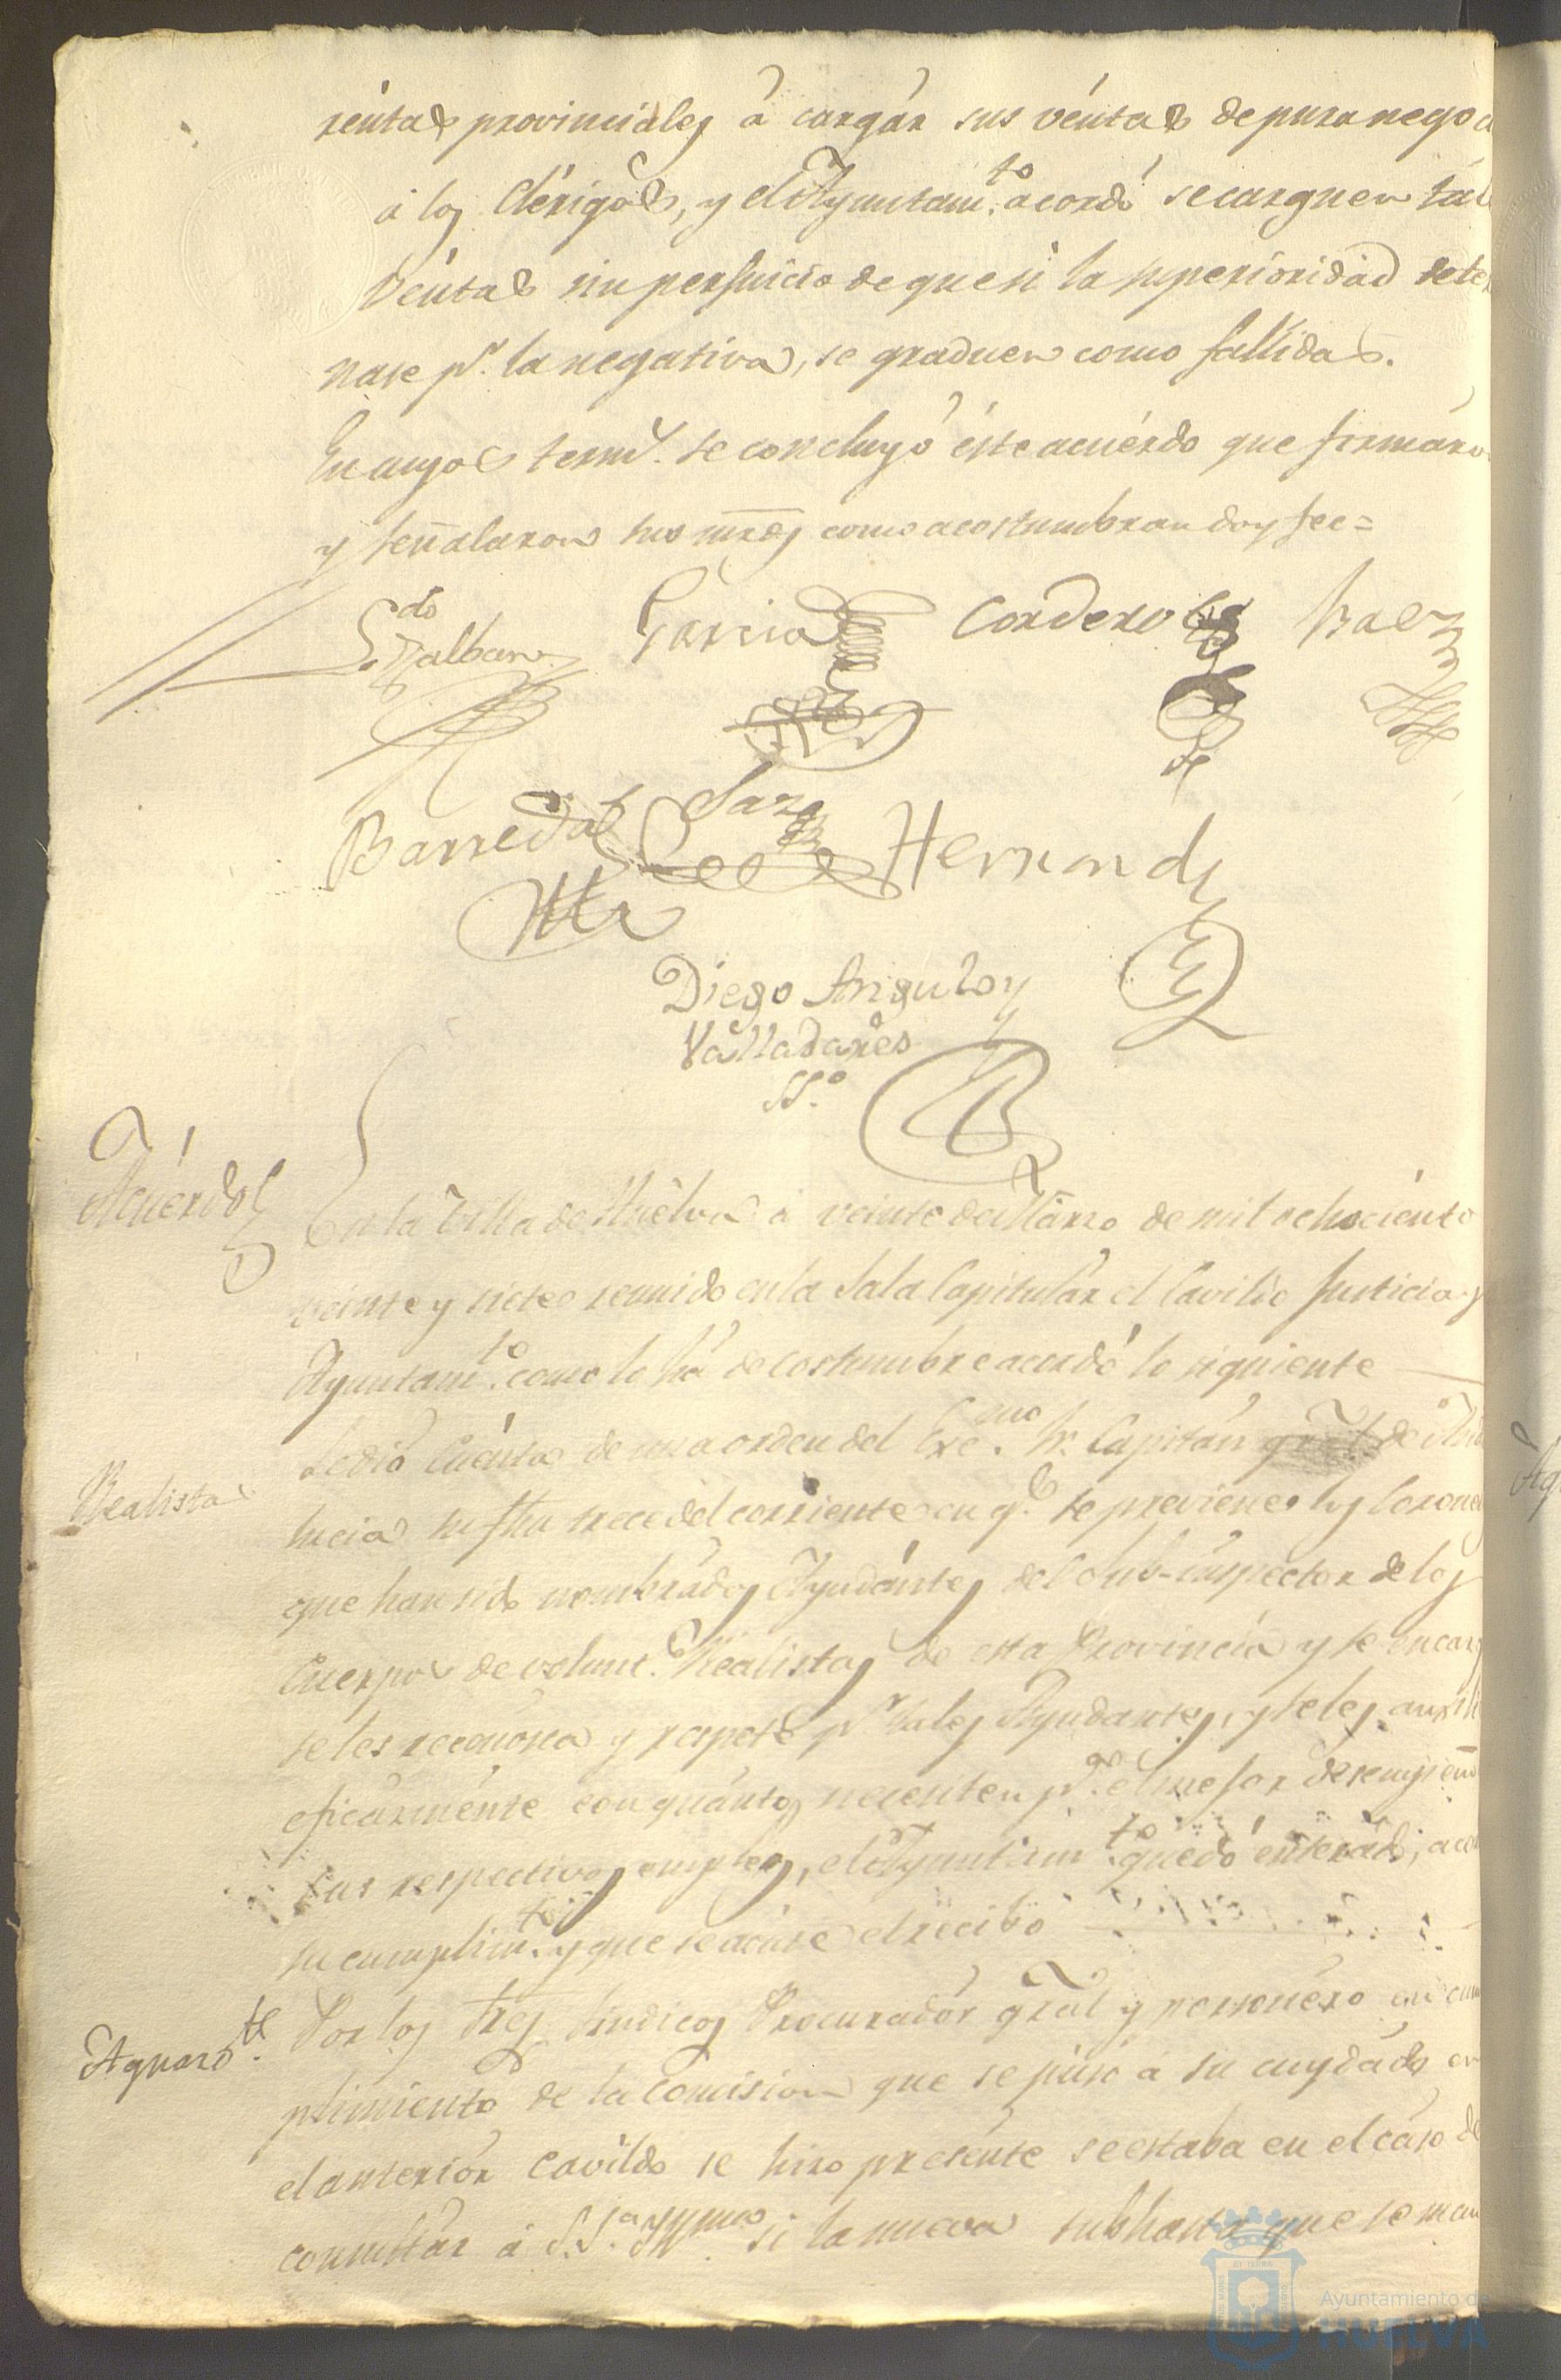 rentas provinciales á cargár sus véntas de pura nego
á los Clérigos, y el Ayuntam.to acordó se carguen
véntas sin perjuicio de que si la superioridád
nase pr. la negativa, se graduen como fallidas.
En cuyos term.s se concluyó éste acuérdo que firmáro
y señalaron sus mrds como acostumbran doy fee=
Ldo Garcia Cordero Baez
Barreda Hernandz
Diego Angulo y
Valladares
SS.o
Acuérdo En la Villa de Huelva á veinte de Marzo de mil ochociénto
veinte y siete reunido en la Sala Capitulár el Cavildo Justicia y
Ayuntam.to como lo há de costumbre acordó lo siguiente
Realistas Se dió Cuénta de una orden del Exc.mo Sr. Capitán gral. de
lucia su fha trece del corriente en q.e se previene los
que han sido nombrados Ayudántes del Sub-inspector de los
Cuerpos de volunt.s Realistas de esta Provincia y se
se les reconosca y respete pr. tales Ayudantes, y se les
eficázménte con quántos necesiten p.a el mejor desempeño
sus respectivos empleos, el Ayuntam.to quedó enterado;
su cumplim.to y que se acúse el recibo
Aguard.te Por los Sres Sindicos Procuradór grál y personéro en cum
plimiento de la Comision que se puso á su cuydádo en
el anteriór Cavildo se hizo presénte se estaba en el cáso de
consultár á S.S.a Yllma si la nueva subhasta que se man
Ayuntamiento de
HUELVA